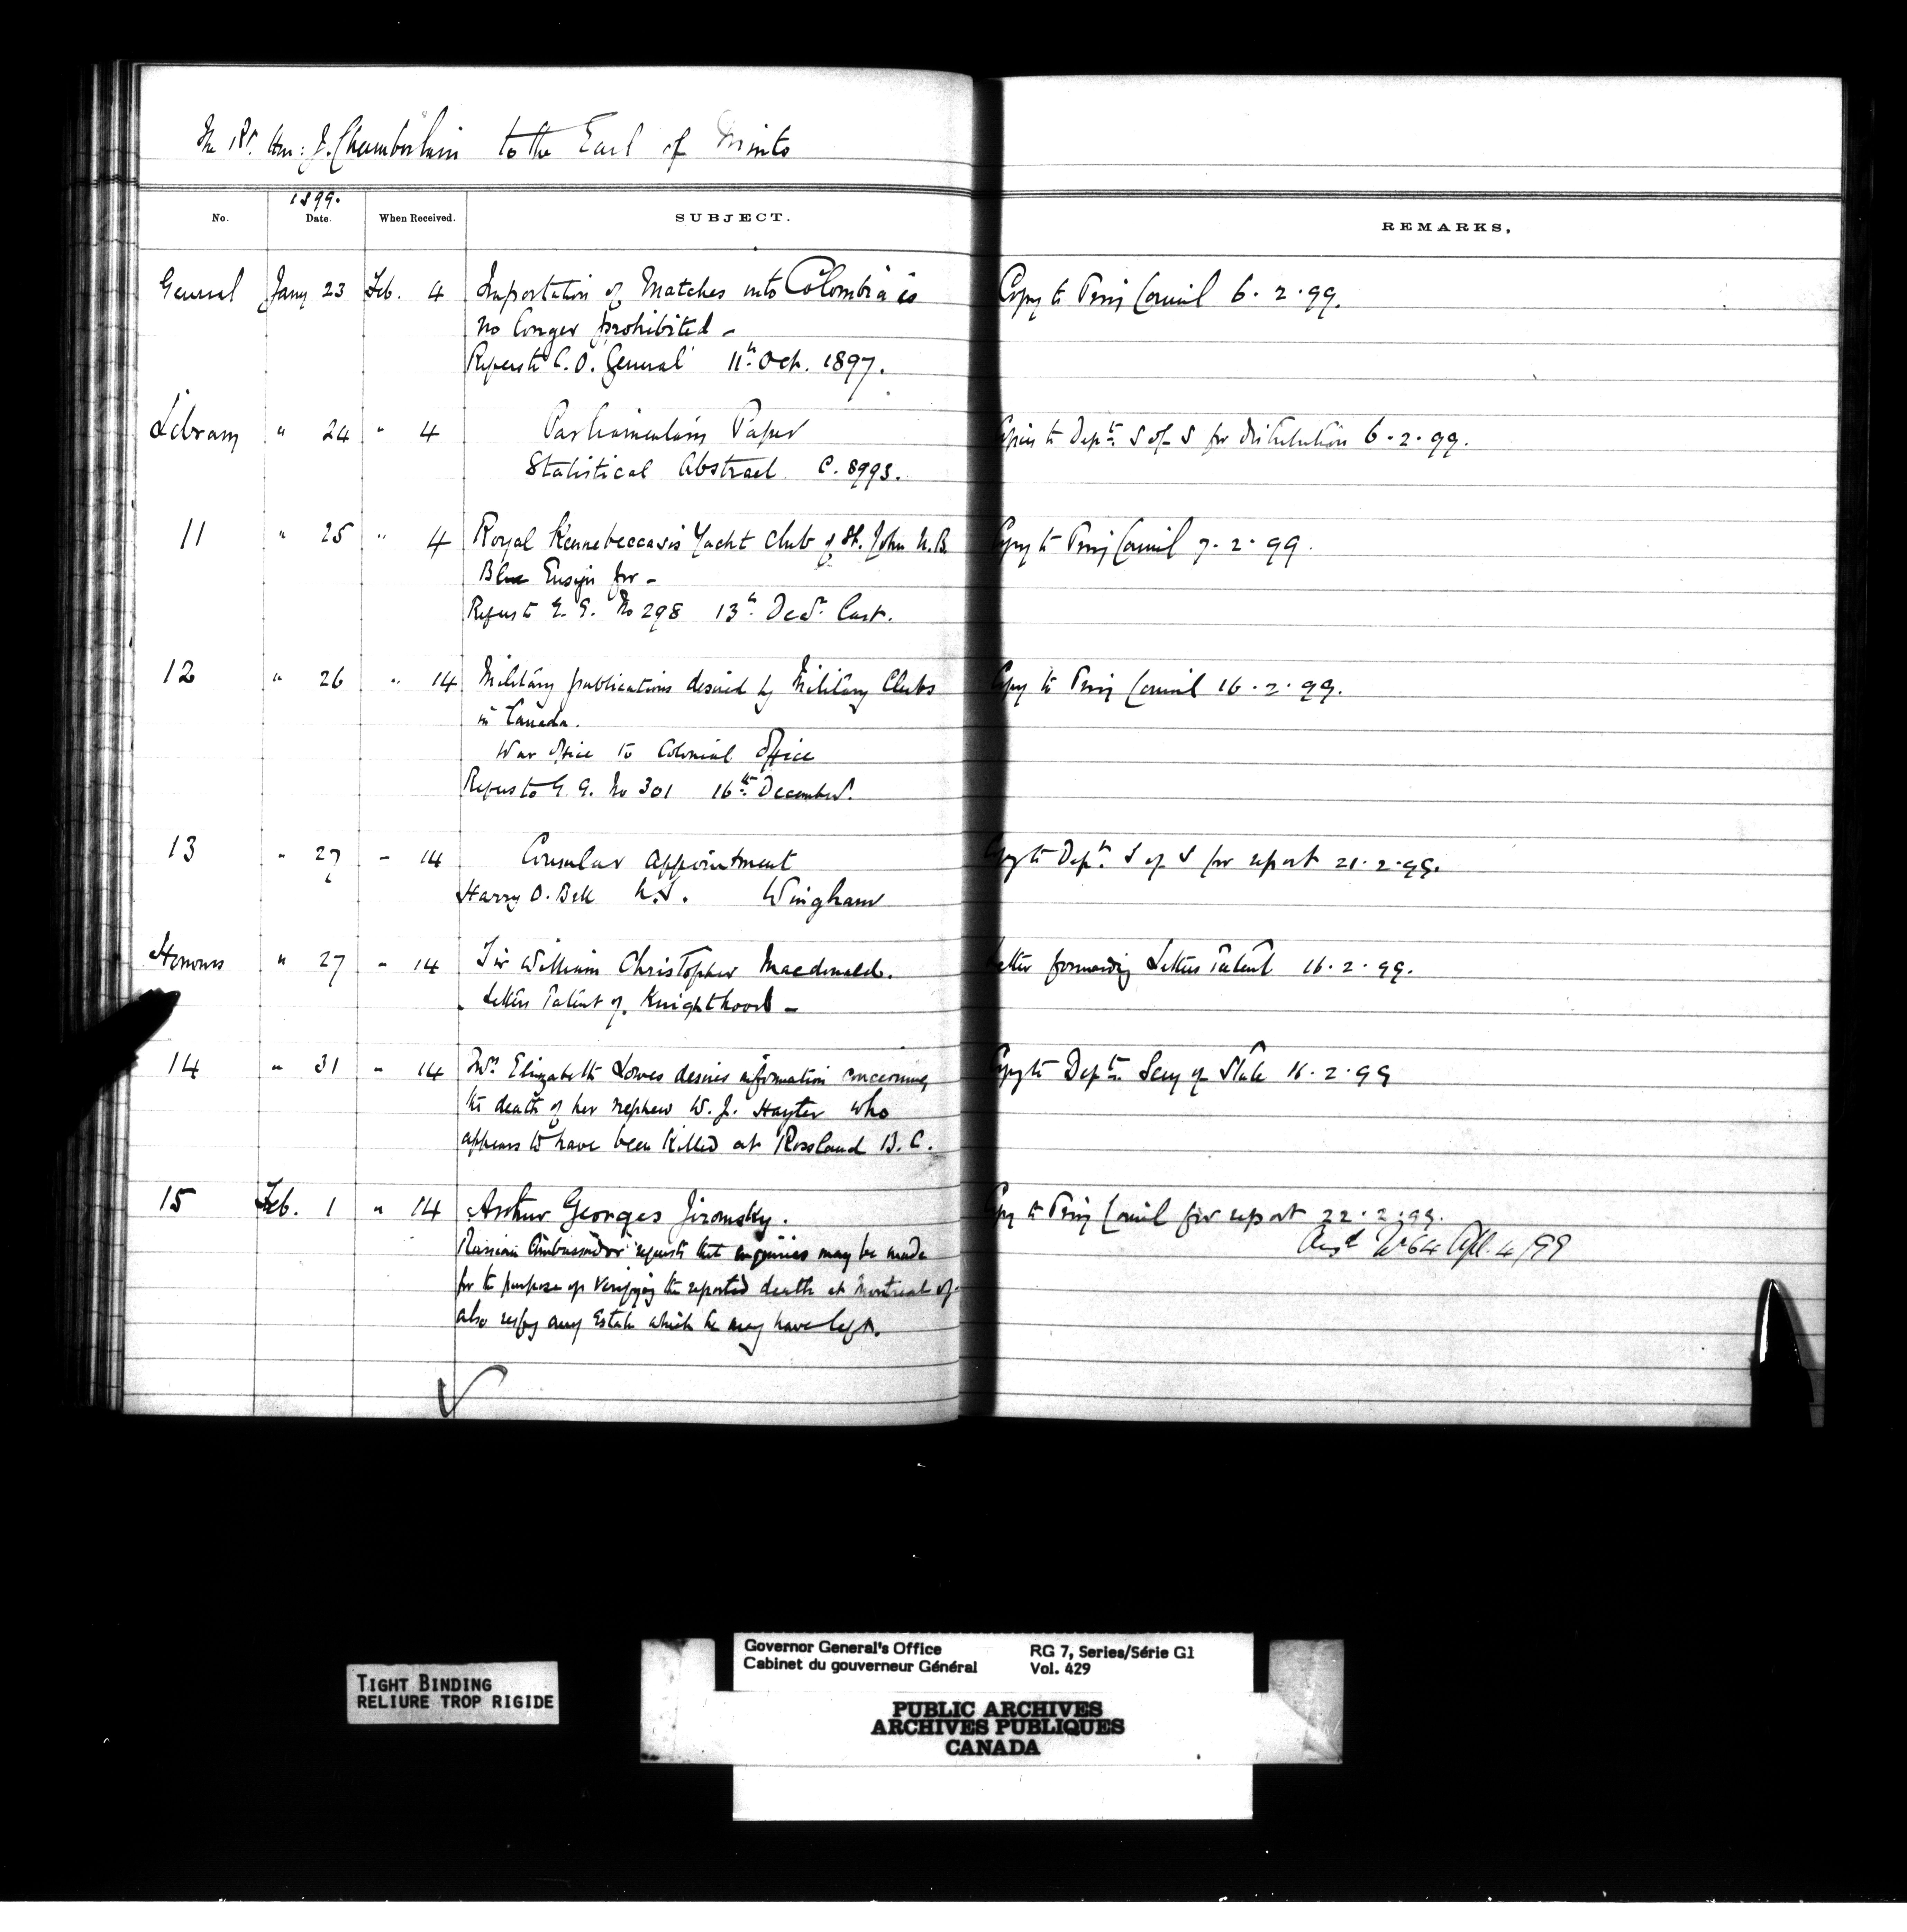 The Rt. Hon: J. Chamberlain to the Earl of Minto
1899.
No. Date. When Received. SUBJECT. REMARKS.
General Jany 23 Feb. 4 Importation of Matches into Colombia is Copy to Privy Council 6.2.99.
no longer prohibited -
Refers to C.O. General 11th Oct. 1897.
Library " 24 " 4 Parliamentary Paper Copies to Dept. S of S for distribution 6.2.99.
Statistical Abstract C. 8993.
11 " 25 " 4 Royal Kennebeccasis Yacht Club of St. John N.B. Copy to Privy Council 7.2.99.
Blue Ensign for -
Refers to G.G. No 298 13th Decr. last.
12 " 26 " 14 Military publications desired by Military Clubs Copy to Privy Council 16.2.99.
in Canada.
War Office to Colonial Office
Refers to G.G. No 301 16th December.
13 " 27 " 14 Consular Appointment Copy to Dept. S of S for report 21.2.99.
Harry O. Bell U.S. Wingham
Honours " 27 " 14 Sir William Christopher Macdonald. Letter forwarding Letters Patent 16.2.99.
Letters Patent of Knighthood -
14 " 31 " 14 Mrs. Elizabeth Lowes desires information concerning Copy to Dept. Secy of State 16.2.99
the death of her nephew W. J. Hayter who
appears to have been killed at Rossland B.C.
15 Feb. 1 " 14 Arthur Georges Jiromsky. Copy to Privy Council for report 22.2.99.
Ansd No 64 Apl. 4/99
Russian Ambassador requests that enquiries may be made
for the purpose of verifying the reported death at Montreal of
also respg any Estate which he may have left.
TIGHT BINDING
RELIURE TROP RIGIDE
Governor General's Office RG 7, Series/Série G1
Cabinet du gouverneur Général Vol. 429
PUBLIC ARCHIVES
ARCHIVES PUBLIQUES
CANADA